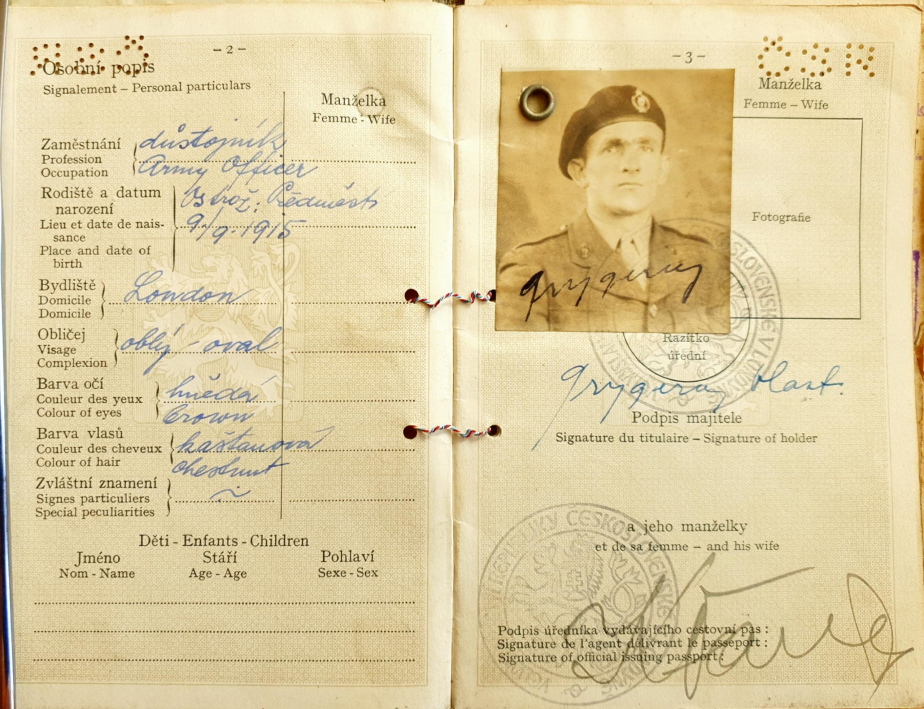 – 2 –
Osobní popis
Signalement – Personal particulars
Manželka
Femme - Wife
Zaměstnání
důstojník
Profession
Occupation
Army Officer
Rodiště a datum
narození
Lieu et date de nais-
sance
Place and date of
birth
9/9. 1915
Bydliště
Domicile
Domicile
London
Obličej
Visage
Complexion
oblý - oval
Barva očí
Couleur des yeux
Colour of eyes
hnědá
brown
Barva vlasů
Couleur des cheveux
Colour of hair
kaštanová
chestnut
Zvláštní znamení
Signes particuliers
Special peculiarities
Děti - Enfants - Children
Jméno
Nom - Name
Stáří
Age - Age
Pohlaví
Sexe - Sex
– 3 –
ČSR
Manželka
Femme – Wife
Fotografie
Razítko
úřední
Podpis majitele
Signature du titulaire – Signature of holder
a jeho manželky
et de sa femme – and his wife
Podpis úředníka vydávajícího cestovní pas :
Signature de l'agent délivrant le passeport :
Signature of official issuing passport :